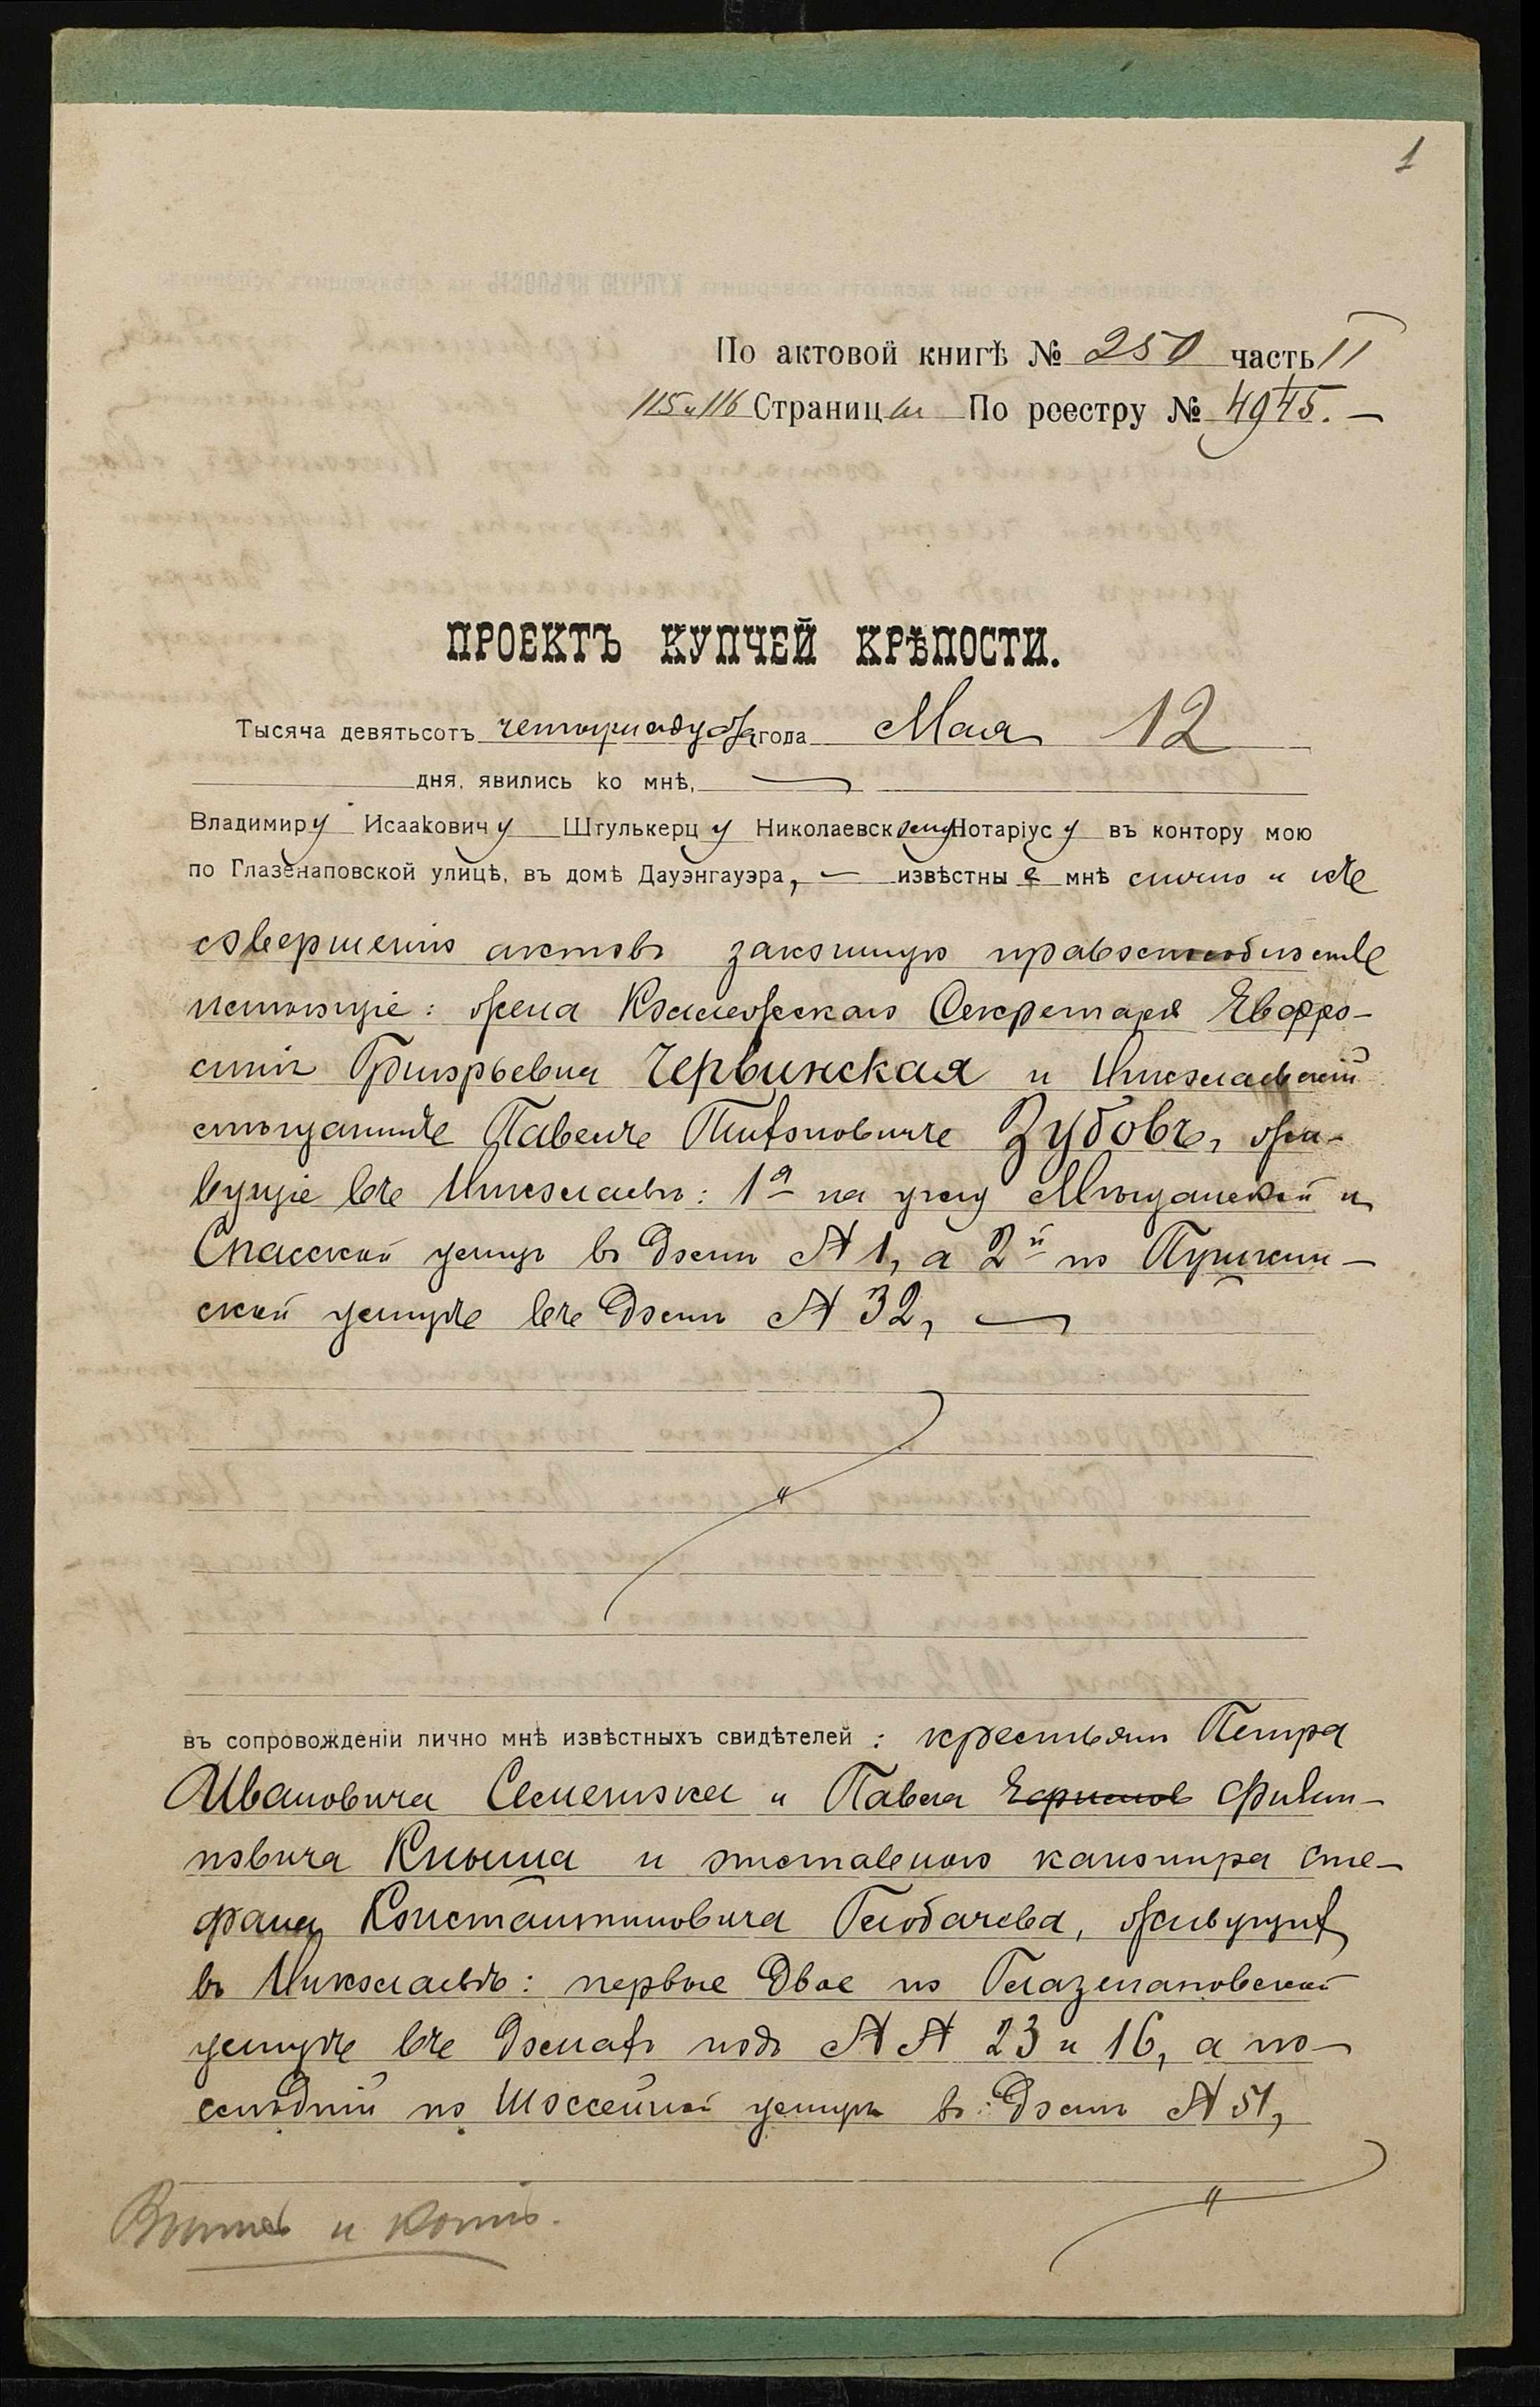 1
По актовой книгѣ № 250 часть II
115 и 116 Страницы По реестру № 4945. —
ПРОЕКТЪ КУПЧЕЙ КРѢПОСТИ.
Тысяча девятьсотъ четырнадцатаго года Мая 12
дня, явились ко мнѣ,
Владимиру Исааковичу Штулькерцу Николаевскому Нотаріусу въ контору мою
по Глазенаповской улицѣ, въ домѣ Дауэнгауэра, — извѣстные мнѣ лично и къ
совершенію актовъ законную правоспособность
имѣющіе: жена Коллежскаго Секретаря Евфро-
синія Григорьевна Червинская и Николаевскій
мѣщанинъ Павелъ Тихоновичъ Зубовъ, жи-
вущіе въ Николаевѣ: 1я на углу Мѣщанской и
Спасской улицъ въ домѣ № 1, а 2й по Пушкин-
ской улицѣ въ домѣ № 32,
въ сопровожденіи лично мнѣ извѣстныхъ свидѣтелей: крестьянъ Петра
Ивановича Семенюка и Павла Филип-
повича Кныша и отставного канонира Сте-
фана Константиновича Глобачева, живущихъ
въ Николаевѣ: первые двое по Глазенаповской
улицѣ въ домахъ подъ №№ 23 и 16, а по-
слѣдній по Шоссейной улицѣ въ домѣ № 51,
и копію.